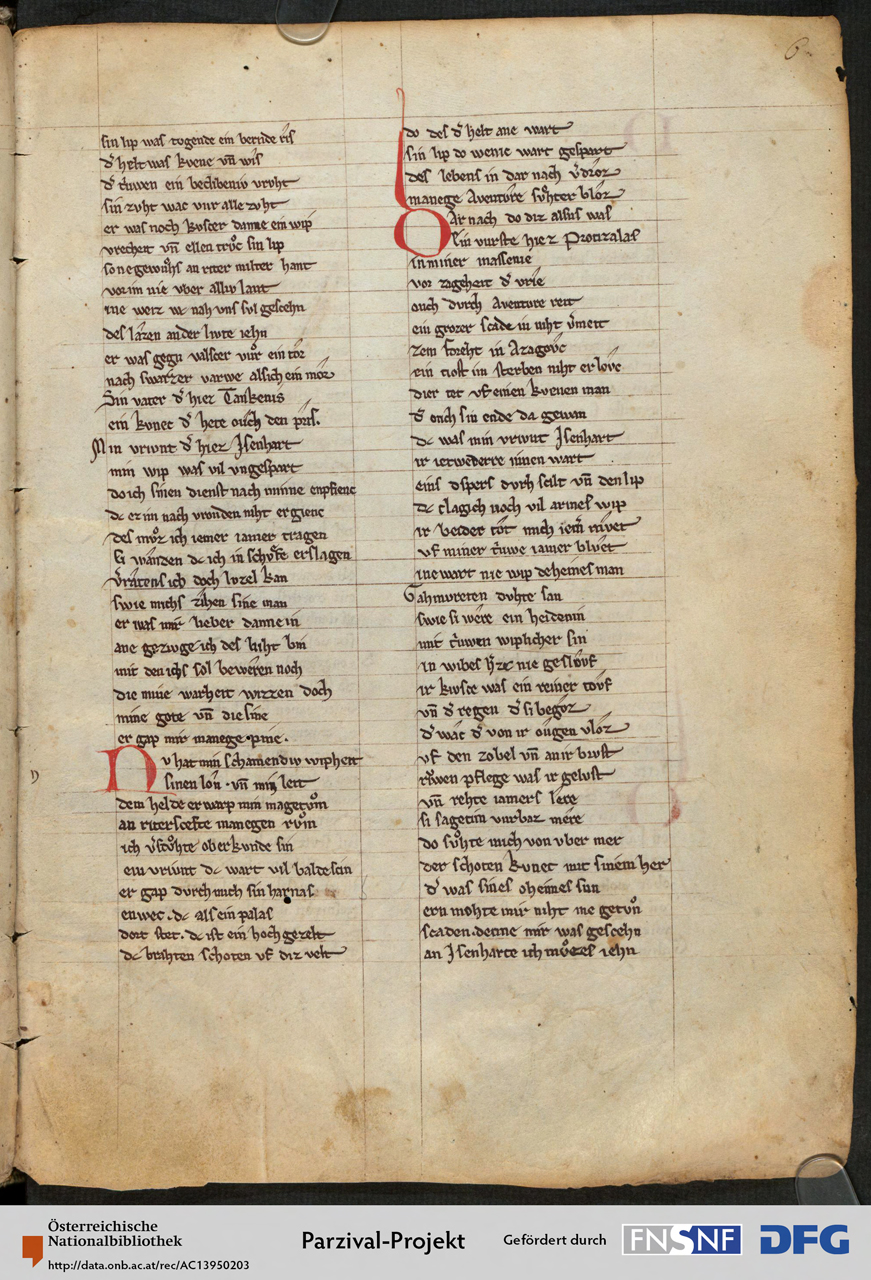 6
sin lip was togende ein bernde ris
d͛ helt was kvene vn̄ wis
d͛ t͛wen ein beclibeniv vruht
sin zvht wac vur alle zvht
er was noch kvscer danne ein wip
vrecheit vn̄ ellen trvͦc sin lip
sone gewuͦhs an riter milter hant
vor im nie vber alliv lant
ine weiz wc nah vns svl gescehn
des lazen ander livte iehn
er was gegn valscer vuͦr ein tor
nach swarzer varwe alsich ein mor
Sin vater d͛ hiez Tankenis
ein kvnec d͛ hete ovch den pris.
Min vrivnt d͛ hiez Isenhart
min wip was vil vngespart
do ich sinen dienst nach minne enpfienc
dc er im nach vrovden niht ergienc
des mvͦz ich iemer iamer tragen
si wanden dc ich in schvͦfe erslagen
v͛ratens ich doch lvzel kan
swie michs zihen sine man
er was mir lieber danne in
ane gezivge ich des niht bin
mit den ichs sol beweren noch
die mine warheit wizzen doch
mine gote vn̄ die sine
er gap mir manege pine.
Nv hat min schamendiv wipheit
sinen lon vn̄ min leit
dem helde erwarp min magetvͦm
an riterscefte manegen rvͦm
ich v͛svͦhte ober kvnde sin
ein vrivnt dc wart vil balde scin
er gap dvrch mich sin harnas
enwec. dc als ein palas
dort stet. dc ist ein hoch gezelt
dc brahten schoten vf diz velt
do des d͛ helt ane wart
sin lip do wenic wart gespart
des lebens in dar nach v͛droz
manege Aventvre svͦhter bloz
Dar nach do diz alsus was
Ein vurste hiez Protizalas
in miner massenie
vor zageheit d͛ vrie
ouch dvrch Aventvre reit
ein grozer scade in niht v͛meit
zem foreht in Azagovc
ein tiost im sterben niht erlovc
dier tet vf einen kvenen man
d͛ ouch sin ende da gewan
dc was min vrivnt Isenhart
ir ietwederre innen wart
eins dspers dvrh scilt vn̄ den lip
dc clagich noch vil armes wip
ir beider tot mich iem͛ mvet
vf miner t͛we iamer blvet
ine wart nie wip deheines man
Gahmvreten dvhte san
swie si were ein heidenin
mit t͛wen wiplicher sin
in wibes h͛ze nie geslovf
ir kivsce was ein reiner tovf
vn̄ d͛ regen d͛ si begoz
d͛ wac d͛ von ir ougen vloz
vf den zobel vn̄ an ir brvst
rivwen pflege was ir gelvst
vn̄ rehte iamers lere
si sagetim vurbaz mere
do svͦhte mich von vber mer
der schoten kvnec mit sinem her
d͛ was sines oheimes sun
ern mohte mir niht me getvͦn
scaden. denne mir was gescehn
an Isenharte ich mvͦzes iehn
Österreichische
Nationalbibliothek
http://data.onb.ac.at/rec/AC13950203
Parzival-Projekt
Gefördert durch
FNSNF
DFG